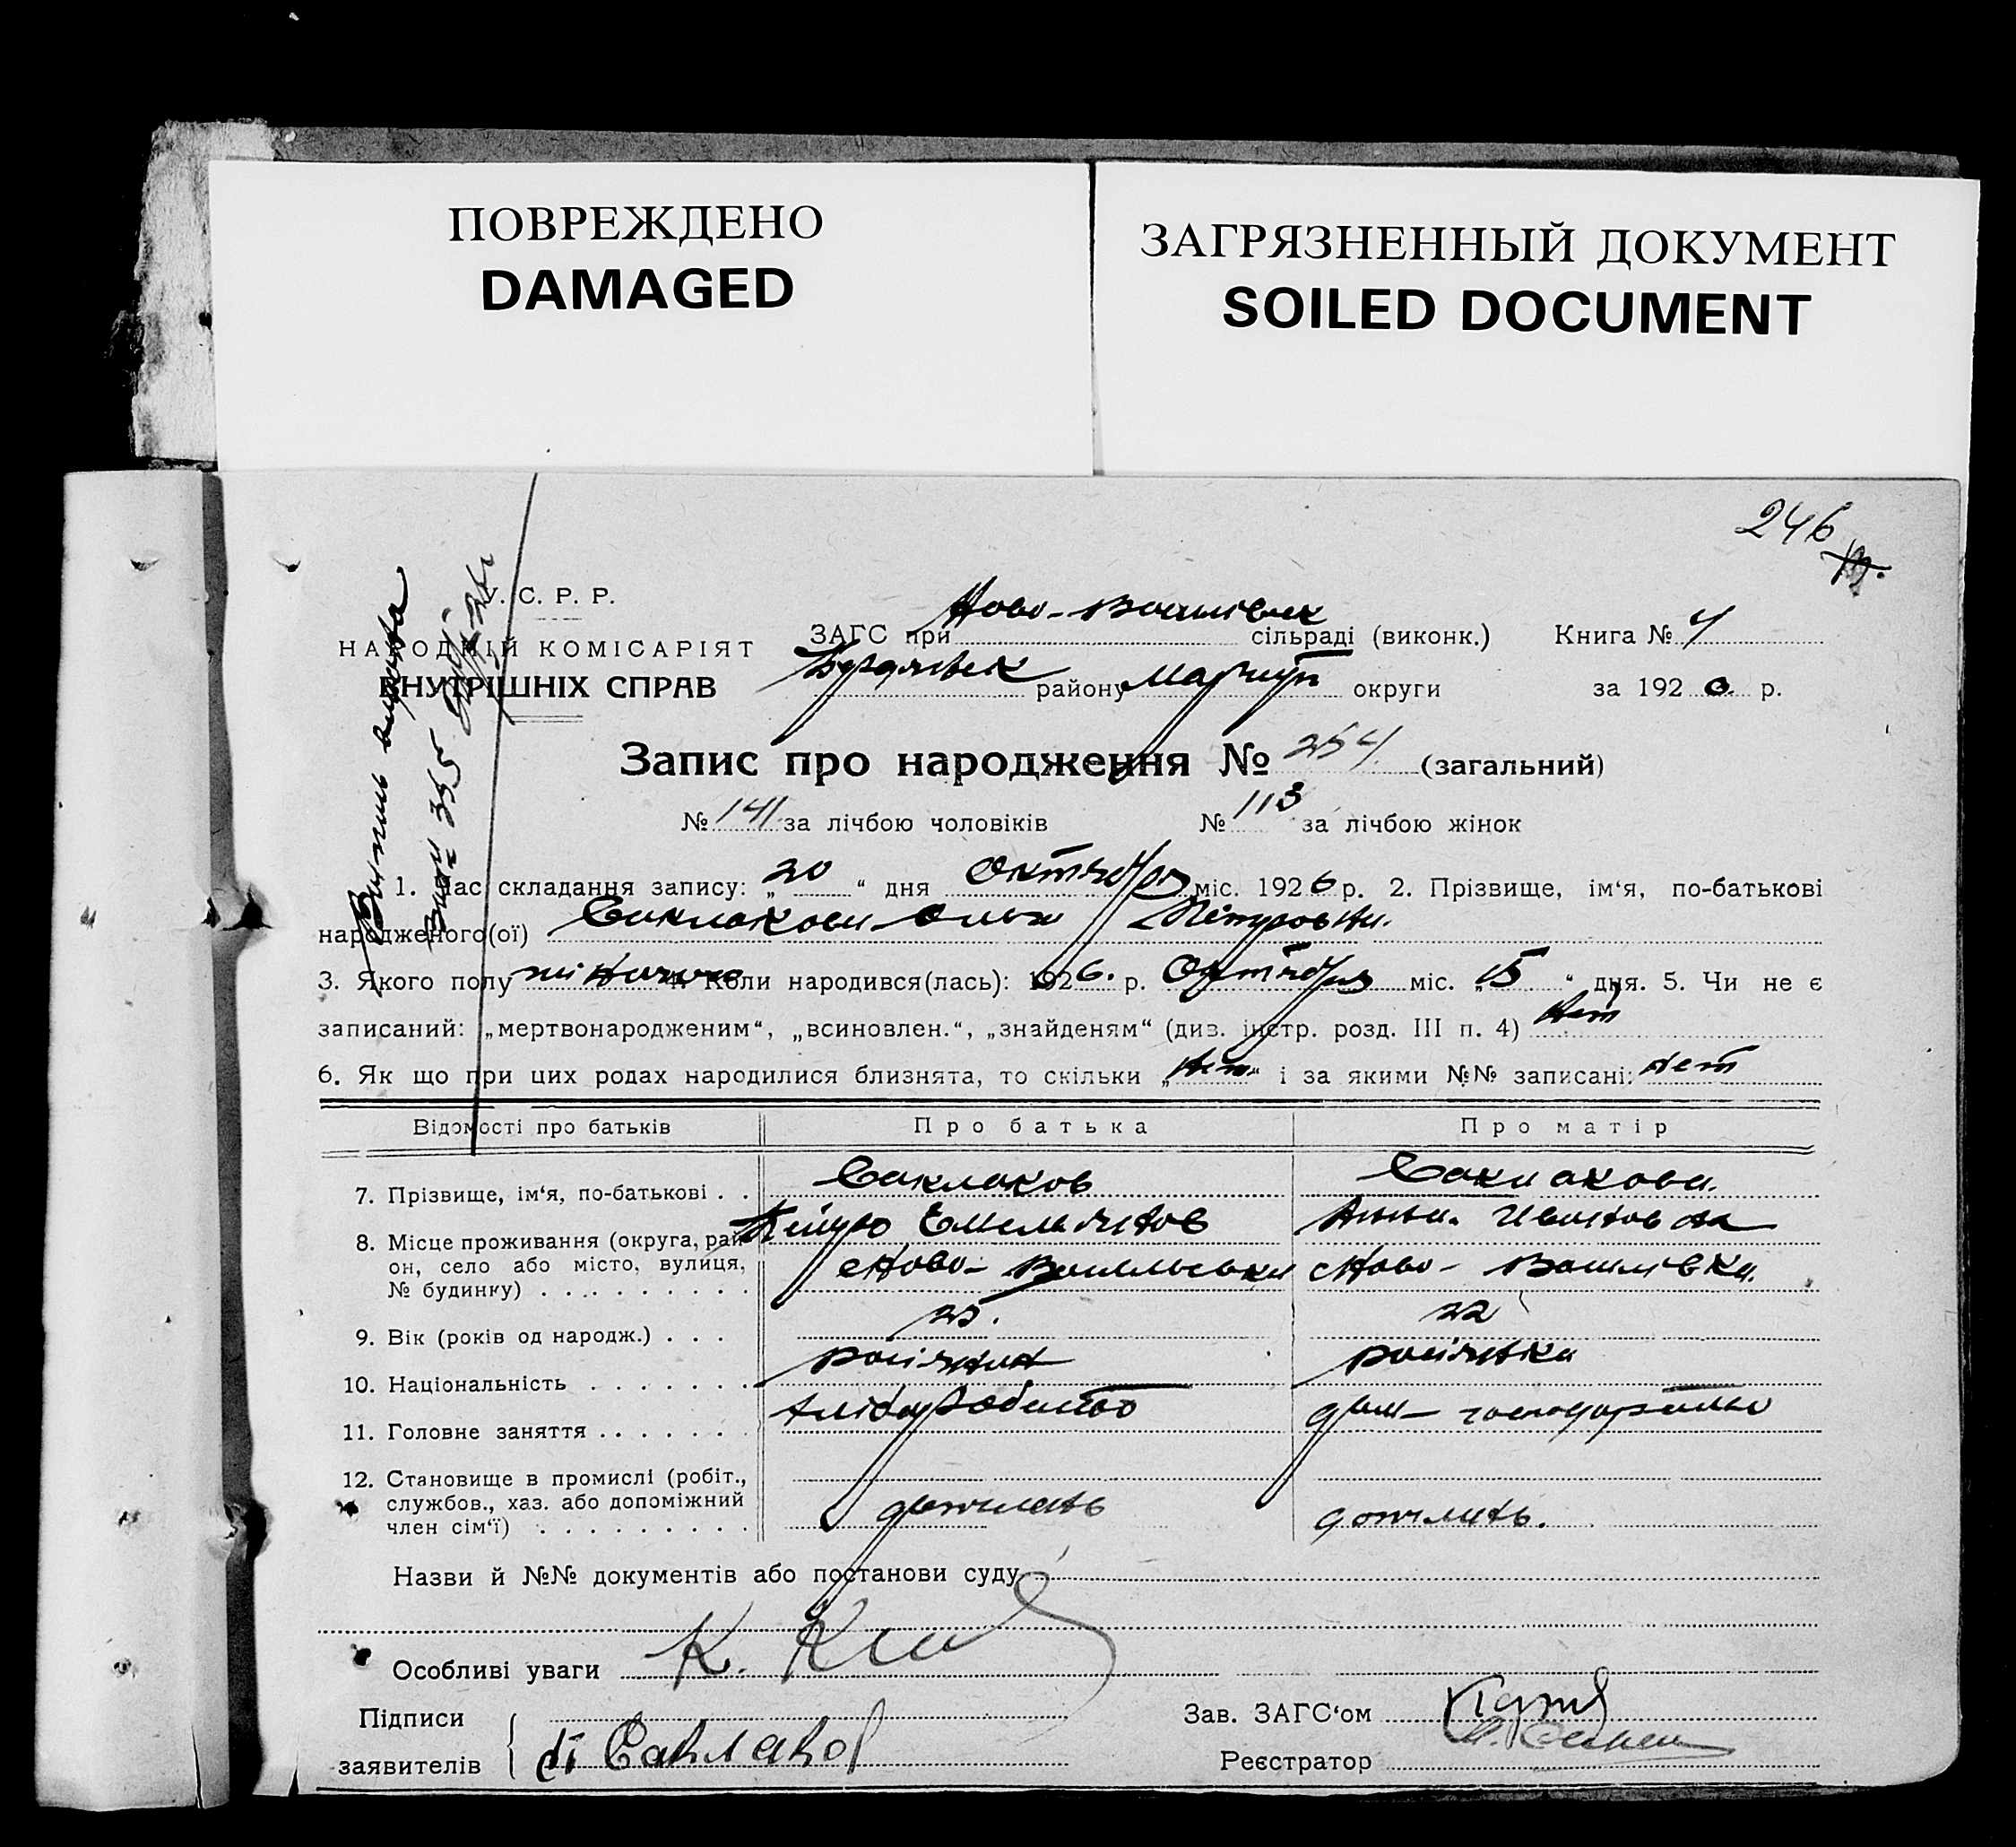 ПОВРЕЖДЕНО
DAMAGED
ЗАГРЯЗНЕННЫЙ ДОКУМЕНТ
SOILED DOCUMENT
246
У. С. Р. Р.
НАРОДНІЙ КОМІСАРІЯТ
ВНУТРІШНІХ СПРАВ
ЗАГС при Ново-Василівск сільраді (виконк.) Книга № 4
району Маріуп округи за 192 р.
Запис про народження № 254 (загальний)
№ 141 за лічбою чоловіків № 113 за лічбою жінок
1. Час складання запису: „20“ дня Октября міс. 1926 р. 2. Прізвище, ім‘я, по-батькові
народженого(ої) Саклакова Ольга Петровна.
3. Якого полу жіночого 4. Коли народився(лась): 1926. р. Октября міс. „15“ дня. 5. Чи не є
записаний: „мертвонародженим“, „всиновлен.“, „знайденям“ (див. інстр. розд. III п. 4) Нет
6. Як що при цих родах народилися близнята, то скільки „Нет“ і за якими №№ записані: Нет
Відомості про батьків Про батька Про матір
7. Прізвище, ім‘я, по-батькові . . Саклаков Саклакова.
Петро Емельянов Анна Ивановна
8. Місце проживання (округа, рай-
он, село або місто, вулиця,
№ будинку) Ново- Ново-Василівка.
9. Вік (років од народж.) . . . 25. 22
10. Національність росіянин росіянка
11. Головне заняття хліборобство дом-господарство
12. Становище в промислі (робіт.,
службов., хаз. або допоміжний
член сім‘ї)
Назви й №№ документів або постанови суду
Особливі уваги
Підписи
заявителів Саклаков
Зав. ЗАГС‘ом
Реєстратор